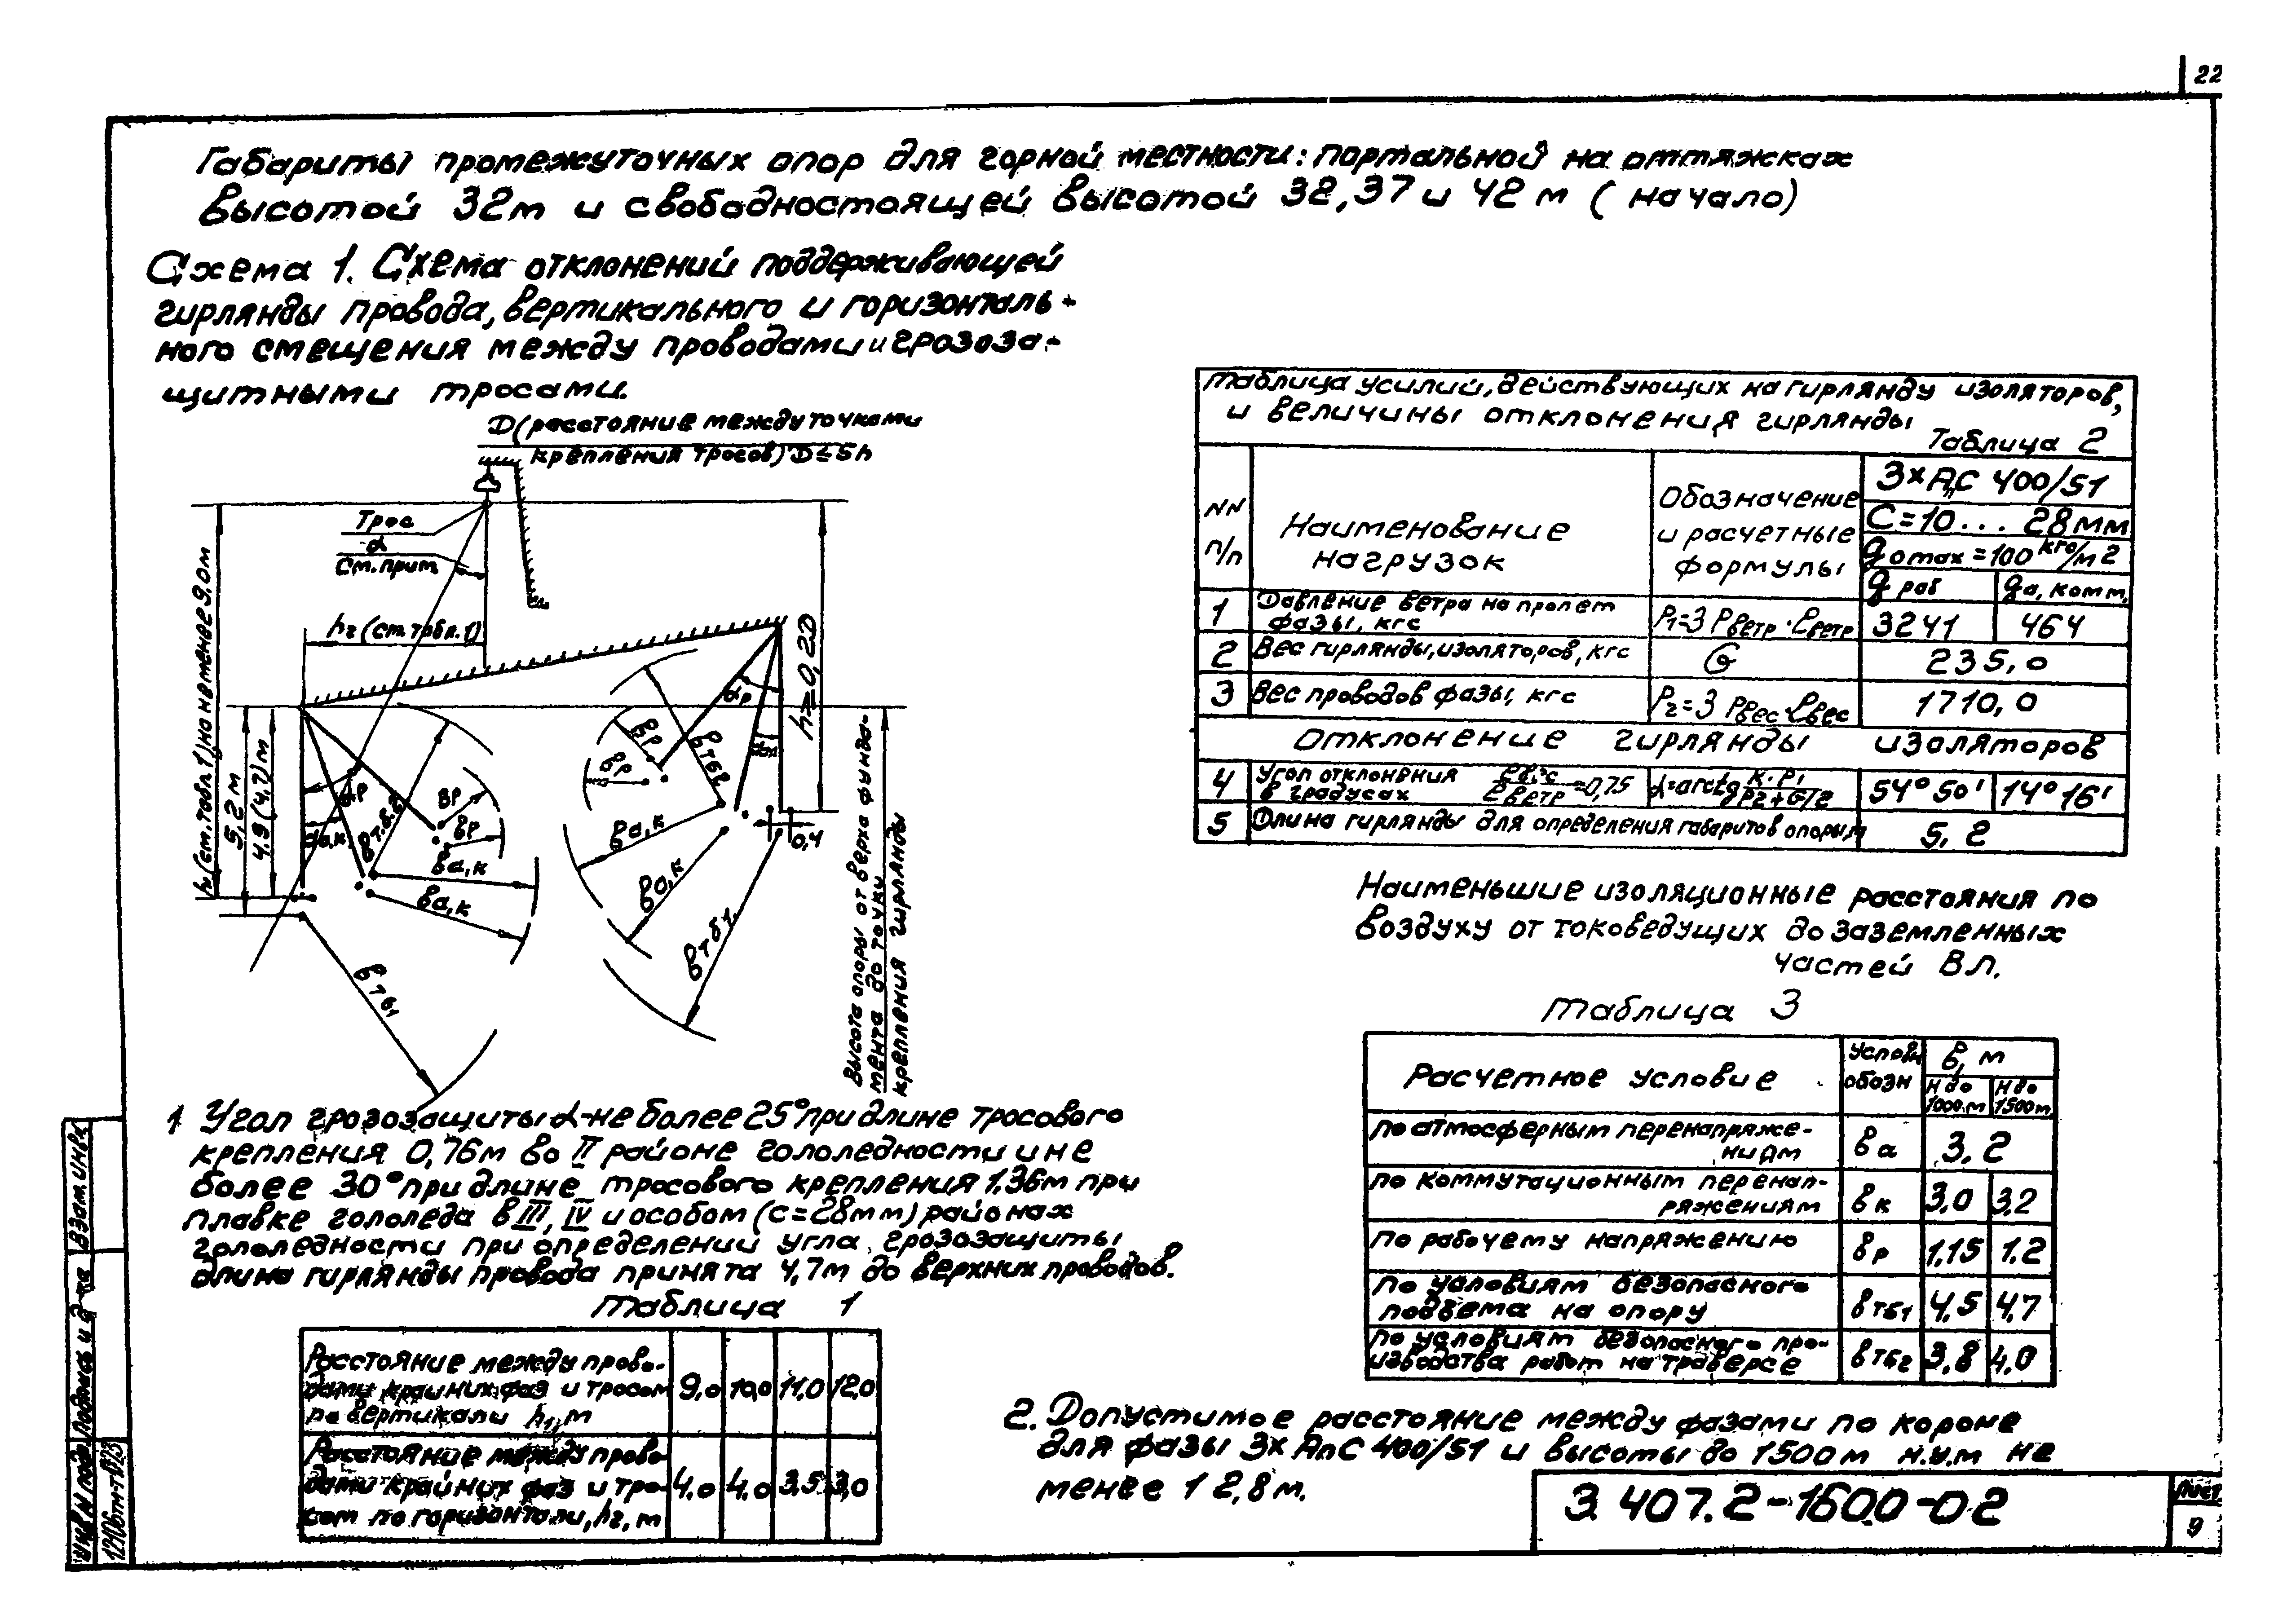 22
Габариты промежуточных опор для горной местности: портальной на оттяжках
высотой 32м и свободностоящей высотой 32, 37 и 42 м (начало)
Схема 1. Схема отклонений поддерживающей
гирлянды провода, вертикального и горизонталь-
ного смещения между проводами и грозоза-
щитными тросами.
D (расстояние между точками
крепления тросов) D≤5h
Трос
α
См. прим.
h2 (см. табл. 1)
h1 (см. табл. 1) не менее 9,0м
5,2 м
4.9 (4,7) м
αр
αа,к
вт.б.2
вр
вр
ва,к
ва,к
втб1
вр
вр
втб2
αр
ва,к
ва,к
втб1
0,4
h≥0,2D
Высота опоры от верха фунда-
мента до точки
крепления гирлянды
1 Угол грозозащиты α-не более 25° при длине тросового
крепления 0,76м во II районе гололедности и не
более 30° при длине тросового крепления 1,36м при
плавке гололеда в III, IV и особом (с=28мм) районах
гололедности при определении угла грозозащиты
длина гирлянды провода принята 4,7м до верхних проводов.
Таблица 1
Расстояние между прово-
дами крайних фаз и тросом
по вертикали h1, м
9,0 10,0 11,0 12,0
Расстояние между прово-
дами крайних фаз и тро-
сом по горизонтали, h2, м
4,0 4,0 3,5 3,0
Таблица усилий, действующих на гирлянду изоляторов,
и величины отклонения гирлянды
Таблица 2
NN п/п
Наименование нагрузок
Обозначение и расчетные формулы
3×АС 400/51
С=10... 28мм
qоmax =100 кгс/м2
q раб
qа, комм.
1 Давление ветра на пролет фазы, кгс P1=3 Pветр·ℓветр 3241 464
2 Вес гирлянды, изоляторов, кгс G 235,0
3 Вес проводов фазы, кгс P2=3 Pвес·ℓвес 1710,0
Отклонение гирлянды изоляторов
4 Угол отклонения в градусах ℓвес/ℓветр=0,75 α=arctg K·P1/P2+G/2 54°50' 14°16'
5 Длина гирлянды для определения габаритов опоры, м 5,2
Наименьшие изоляционные расстояния по
воздуху от токоведущих до заземленных
частей ВЛ.
Таблица 3
Расчетное условие
Условн обозн
в, м
Н до 1000м
Н до 1500м
По атмосферным перенапряже-
ниям ва 3,2
По коммутационным перенап-
ряжениям вк 3,0 3,2
По рабочему напряжению вр 1,15 1.2
По условиям безопасного
подъема на опору втб1 4,5 4,7
По условиям безопасного про-
изводства работ на траверсе втб2 3,8 4,0
2. Допустимое расстояние между фазами по короне
для фазы 3×АпС 400/51 и высоты до 1500м н.у.м не
менее 12,8м.
3.407.2-160.0-02
Лист
9
Взам. инв.
Подпись и дата
Инв. N подл.
12406тм-т1